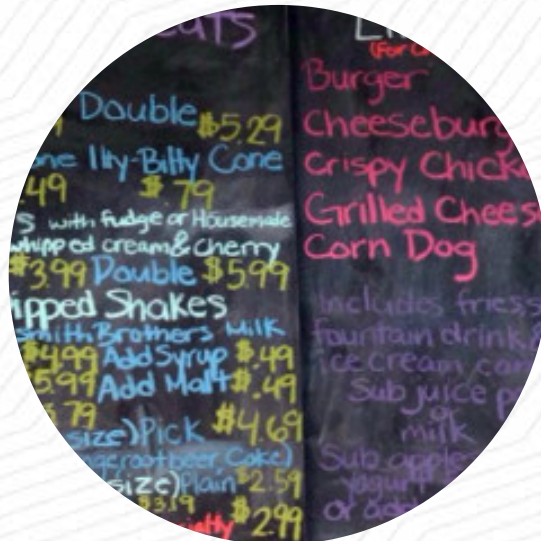 Double $5.29
Itty-Bitty Cone
.49 $.79
with fudge or Housemade
whipped cream & cherry
$3.99 Double $5.99
Shakes
Smith Brothers Milk
$4.99 Add Syrup $.49
5.99 Add Malt $.49
$.79
size) Pick $4.69
rootbeer, Coke)
size) Plain $2.59
$3.19
$2.99
(For
Burger
Cheeseburg
Crispy Chick
Grilled Chees
Corn Dog
Includes fries
fountain drink &
ice cream
Sub juice
or
milk
Sub
yogurt
or